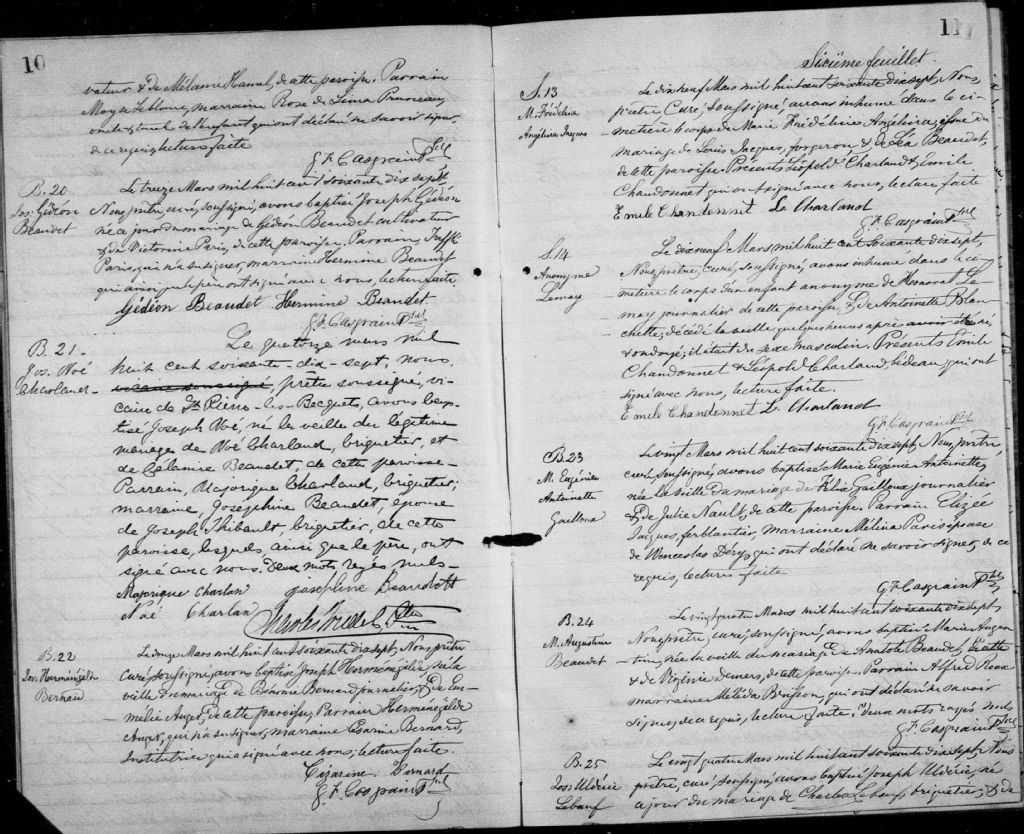 10
vateur & de Mélanie Hamel, de cette paroisse. Parrain
Moyse Leblanc, marraine Rose de Lima Pruneau,
oncle & tante de l'enfant qui ont déclaré ne savoir signer
de ce requis, lecture faite
G. F. Casgrain Ptre
B. 20
Jos. Gédéon
Beaudet
Le treize Mars mil huit cent soixante dix sept
Nous prêtre, curé, soussigné, avons baptisé Joseph Gédéon
né ce jour du mariage de Gédéon Beaudet cultivateur
& de Victorine Paris, de cette paroisse. Parrain
Paris, qui n'a su signer, marraine Hermine Beaudet
qui ainsi que le père ont signé avec nous, lecture faite
Gédéon Beaudet Hermine Beaudet
G. F. Casgrain Ptre
B. 21
Jos. Noé
Charland
Le quatorze mars mil
huit cent soixante-dix-sept, nous,
vicaire soussigné, prêtre soussigné, vi-
caire de St Pierre-les-Becquets, avons bap-
tisé Joseph Noé, né la veille du légitime
mariage de Noé Charland, briquetier, et
de Beaudet, de cette paroisse-
Parrain, Majorique Charland, briquetier;
marraine, Joséphine Beaudet, épouse
de Joseph Thibault, briquetier, de cette
paroisse, lesquels, ainsi que le père, ont
signé avec nous. Deux mots rayés nuls-
Majorique Charlan josephine Beaudett
Noé Charlan
Ptre
B. 22
Jos. Herménégilde
Bernard
Le douze Mars mil huit cent soixante dix sept, Nous prêtre
curé, soussigné, avons baptisé Joseph Herménégilde né la
veille du mariage de Bénonie Bernard journalier, & de Em-
mélie Auger, de cette paroisse, Parrain Herménégilde
Auger, qui n'a su signer, marraine Césarine Bernard,
Institutrice qui a signé avec nous, lecture faite.
Cézarine Bernard
G. F. Casgrain Ptre
11
Sixième feuillet.
S. 13
M. Frédeline
Angélina Jacques
Le dix neuf Mars mil huit cent soixante dix sept, Nous
prêtre, Curé, soussigné, avons inhumé dans le ci-
metière le corps de Marie Frédéline Angélina, issue du
mariage de Louis Jacques, forgeron, & de Léa Beaudet,
de cette paroisse. Présents Léopold Charland & Emile
Chandonnet qui ont signé avec nous, lecture faite
Emile Chandonnet L. Charland
G. F. Casgrain Ptre
S. 14
Anonyme
Lemay
Le dix neuf Mars mil huit cent soixante dix sept,
Nous prêtre, curé, soussigné, avons inhumé dans le ci-
metière le corps d'un enfant anonyme de Le-
may journalier de cette paroisse & de Antoinette Blan-
chette, décédé la veille quelques heures après avoir été né
& ondoyé; il était du sexe masculin. Présents Emile
Chandonnet & Léopold Charland, bedeau, qui ont
signé avec nous, lecture faite.
Emile Chandonnet L. Charland
G. F. Casgrain Ptre
B. 23
M. Eugénie
Antoinette
Gailloux
Le vingt Mars mil huit cent soixante dix sept Nous, prêtre,
curé, soussigné, avons baptisé Marie Eugénie Antoinette,
née la veille du mariage de Félix Gailloux journalier
& de Julie Nault, de cette paroisse. Parrain Elizée
Jacques, ferblantier, marraine Mélina Paris épouse
de Wenceslas Déry, qui ont déclaré ne savoir signer, de ce
requis, lecture faite
G. F. Casgrain Ptre
B. 24
M. Augustine
Beaudet
Le vingt quatre Mars mil huit cent soixante dix sept
Nous prêtre, curé, soussigné, avons baptisé Marie Augus-
tine, née la veille du mariage de Anatole Beaudet, de cette
& de Virginie Demers, de cette paroisse. Parrain Alfred Roux
marraine Brisson, qui ont déclaré ne savoir
signer, de ce requis, lecture faite. Deux mots rayés nuls
G. F. Casgrain Ptre
B. 25
Jos: Uldéric
Lebœuf
Le vingt quatre Mars mil huit cent soixante dix sept, Nous
prêtre, curé, soussigné, avons baptisé Joseph Uldéric, né
ce jour du mariage de Charles Lebœuf, briquetier, & de